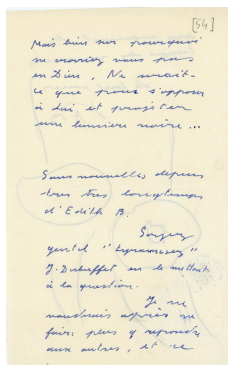 [54]
Mais bien sur pourquoi
ne croiriez vous pas
en Dieu. Ne serait-
ce que pour s'opposer
à lui et projeter
une lumiere noire ...
Sans nouvelles depuis
tres tres longtemps
d'Edith B.
Soyez
gentil
J. Dubuffet en le mettant
à la question.
Je ne
voudrais après ne
faire plus y repondre
aux autres, et ce